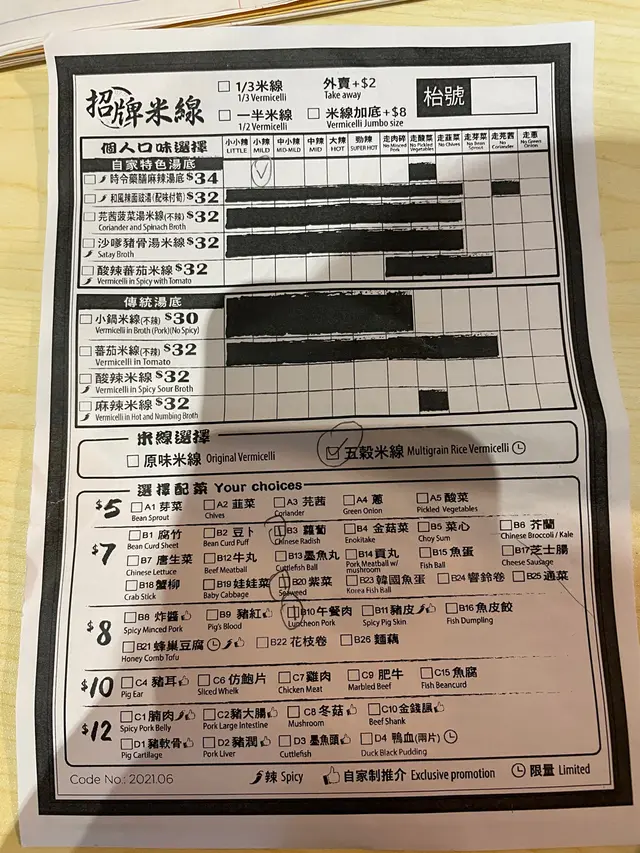 招牌米線
1/3米線
1/3 Vermicelli
外賣+$2
Take away
一半米線
1/2 Vermicelli
米線加底+$8
Vermicelli Jumbo size
枱號
個人口味選擇
小小辣 LITTLE
小辣 MILD
中小辣 MID-MILD
中辣 MID
大辣 HOT
勁辣 SUPER HOT
走肉碎 No Minced Pork
走酸菜 No Pickled Vegetables
走韮菜 No Chives
走芽菜 No Bean Sprout
走芫茜 No Coriander
走蔥 No Green Onion
自家特色湯底
時令藥膳麻辣湯底 $34
和風辣面豉湯(配味付筍) $32
芫茜菠菜湯米線(不辣) $32
Coriander and Spinach Broth
沙嗲豬骨湯米線 $32
Satay Broth
酸辣蕃茄米線 $32
Vermicelli in Spicy with Tomato
傳統湯底
小鍋米線(不辣) $30
Vermicelli in Broth (Pork)(No Spicy)
蕃茄米線(不辣) $32
Vermicelli in Tomato
酸辣米線 $32
Vermicelli in Spicy Sour Broth
麻辣米線 $32
Vermicelli in Hot and Numbing Broth
米線選擇
原味米線 Original Vermicelli
五穀米線 Multigrain Rice Vermicelli
選擇配菜 Your choices
$5
A1 芽菜
Bean Sprout
A2 韮菜
Chives
A3 芫茜
Coriander
A4 蔥
Green Onion
A5 酸菜
Pickled Vegetables
$7
B1 腐竹
Bean Curd Sheet
B2 豆卜
Bean Curd Puff
B3 蘿蔔
Chinese Radish
B4 金菇菜
Enokitake
B5 菜心
Choy Sum
B6 芥蘭
Chinese Broccoli / Kale
B7 唐生菜
Chinese Lettuce
B12 牛丸
Beef Meatball
B13 墨魚丸
Cuttlefish Ball
B14 貢丸
Pork Meatball w/ mushroom
B15 魚蛋
Fish Ball
B17 芝士腸
Cheese Sausage
B18 蟹柳
Crab Stick
B19 娃娃菜
Baby Cabbage
B20 紫菜
Seaweed
B23 韓國魚蛋
Korea Fish Ball
B24 響鈴卷
B25 通菜
$8
B8 炸醬
Spicy Minced Pork
B9 豬紅
Pig's Blood
B10 午餐肉
Luncheon Pork
B11 豬皮
Spicy Pig Skin
B16 魚皮餃
Fish Dumpling
B21 蜂巢豆腐
Honey Comb Tofu
B22 花枝卷
B26 麵藕
$10
C4 豬耳
Pig Ear
C6 仿鮑片
Sliced Whelk
C7 雞肉
Chicken Meat
C9 肥牛
Marbled Beef
C15 魚腐
Fish Beancurd
$12
C1 腩肉
Spicy Pork Belly
C2 豬大腸
Pork Large Intestine
C8 冬菇
Mushroom
C10 金錢𦟌
Beef Shank
D1 豬軟骨
Pig Cartilage
D2 豬潤
Pork Liver
D3 墨魚頭
Cuttlefish
D4 鴨血(兩片)
Duck Black Pudding
Code No.: 2021.06
辣 Spicy
自家制推介 Exclusive promotion
限量 Limited